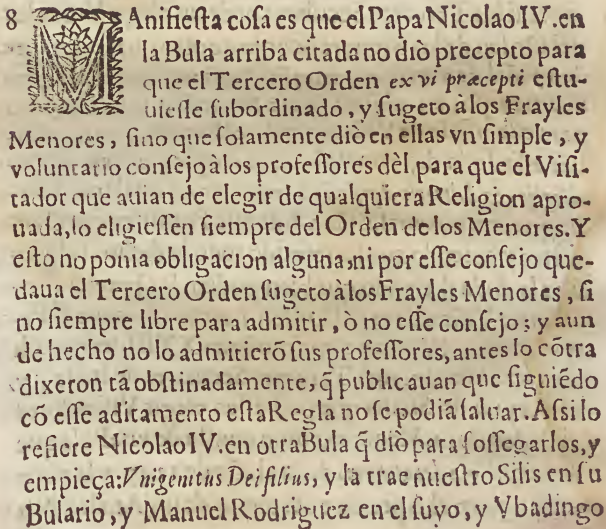 8 MAnifieſta coſa es que el Papa Nicolao IV. en
la Bula arriba citada no diò precepto para
que el Tercero Orden ex vi præcepti eſtu-
uieſſe ſubordinado, y ſugeto à los Frayles
Menores, ſino que ſolamente diò en ellas vn ſimple, y
voluntario conſejo à los profeſſores dèl para que el Viſi-
tador que auian de elegir de qualquiera Religion apro-
uada, lo eligieſſen ſiempre del Orden de los Menores. Y
eſto no ponia obligacion alguna, ni por eſſe conſejo que-
daua el Tercero Orden ſugeto à los Frayles Menores, ſi
no ſiempre libre para admitir, ò no eſſe conſejo; y aun
de hecho no lo admitierõ ſus profeſſores, antes lo cõtra
dixeron tã obſtinadamente, q̃ publicauan que ſiguiẽdo
cõ eſſe aditamento eſta Regla no ſe podiã ſaluar. Aſsi lo
refiere Nicolao IV. en otra Bula q̃ diò para ſoſſegarlos, y
empieça: Vnigenitus Dei filius, y la trae nueſtro Silis en ſu
Bulario, y Manuel Rodriguez en el ſuyo, y Vbadingo